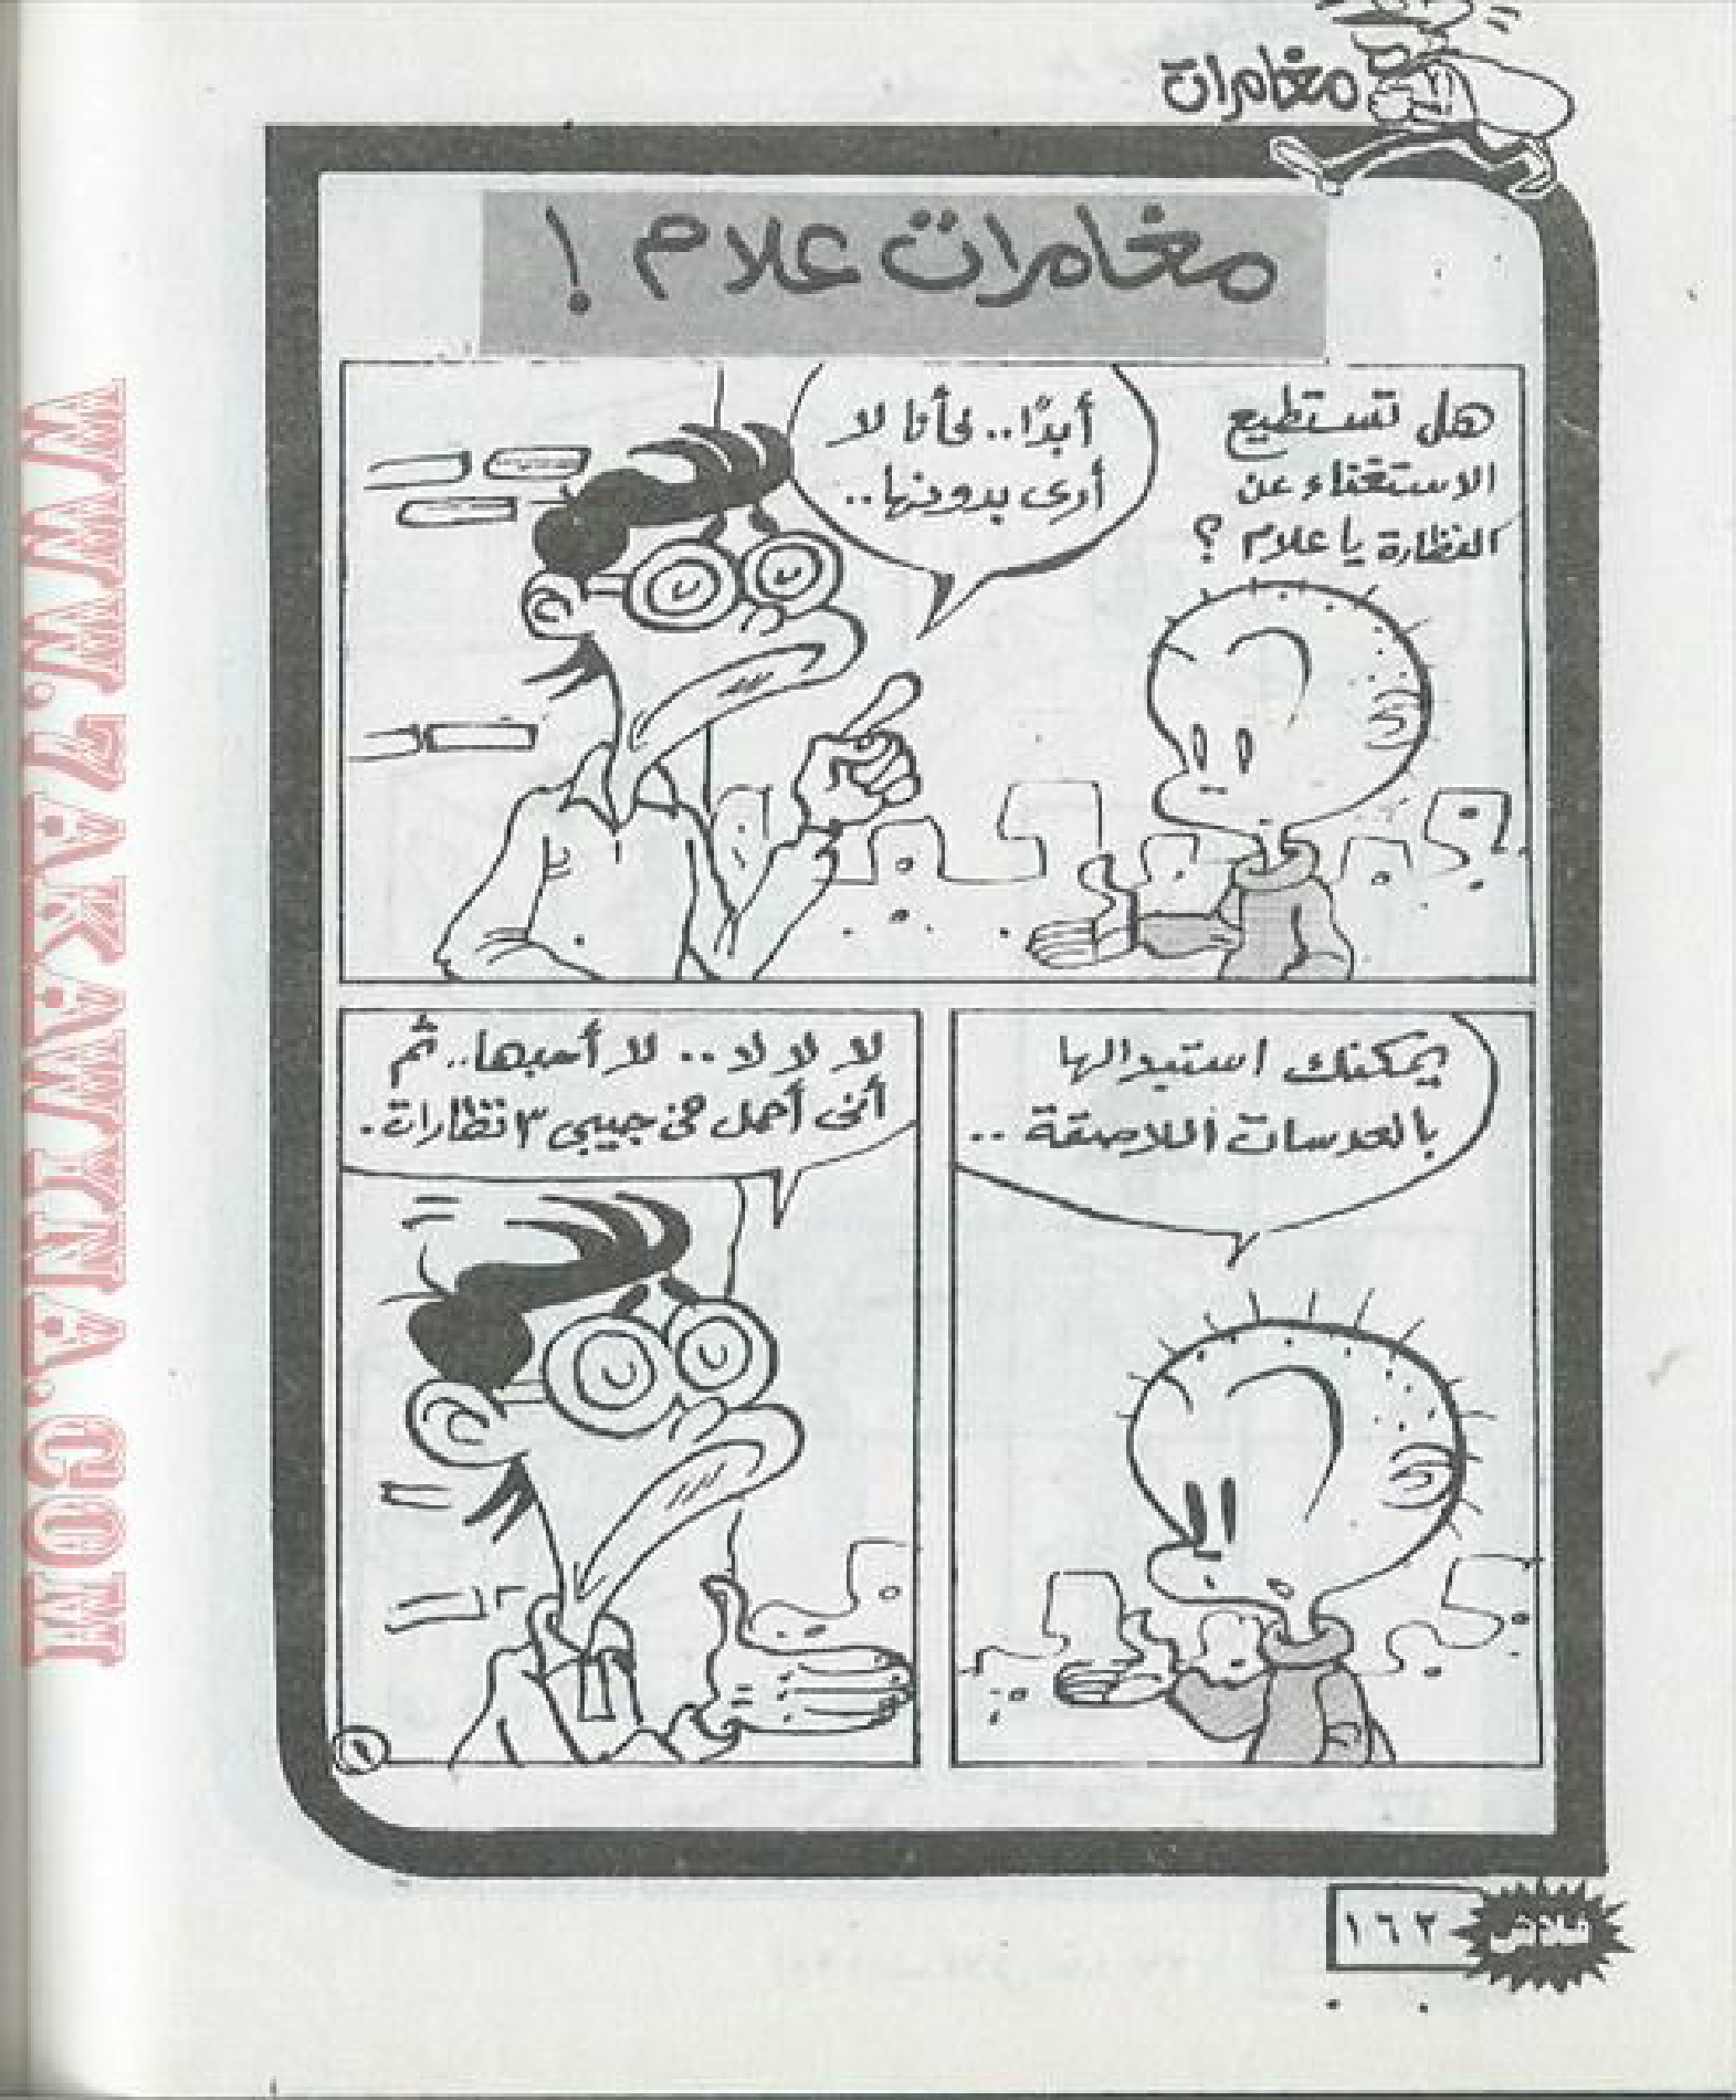 مغامرات
مغامرات علام !
هل تستطيع
الاستغناء عن
النظارة يا علام ؟
أبدًا.. فأنا لا
أرى بدونها..
يمكنك استبدالها
بالعدسات اللاصقة ..
لا لا لا .. لا أحبها.. ثم
أنى أحمل فى جيبى ٣ نظارات.
١
فلاش
١٦٢
WWW.ZAKAVTINA.COM